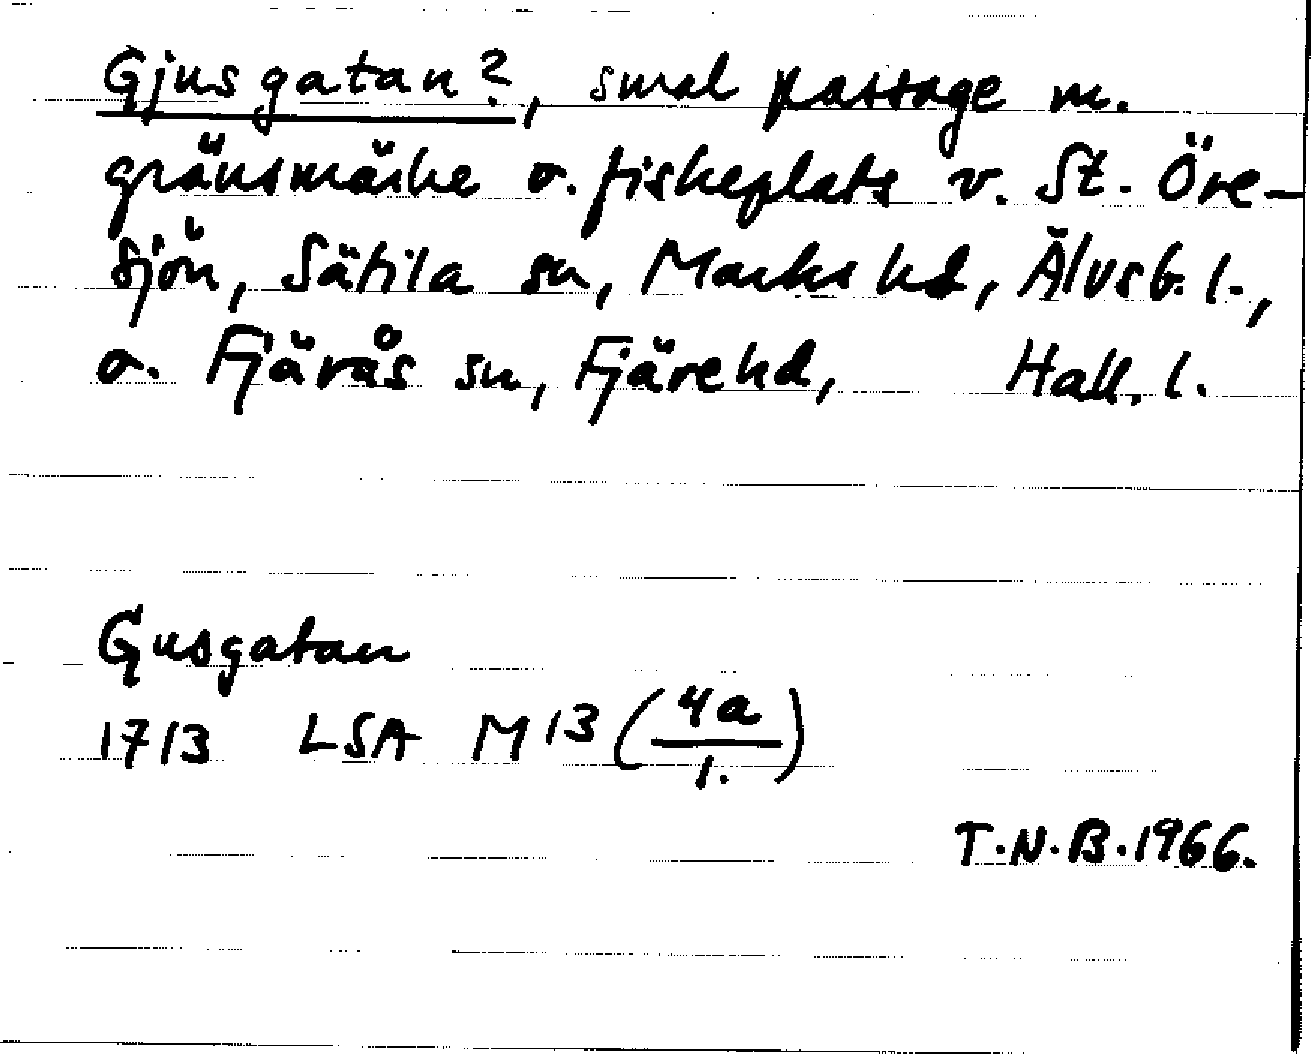 Gjusgatan?, smal passage m.
gränsmärke o. fiskeplats v. St. Öre-
sjön, Sätila sn, Marks hd, Älvsb. l.,
o. Fjärås sn, Fjäre hd, Hall. l.
Gusgatan
1713 LSA M 13 (4a/1.)
T.N.B. 1966.